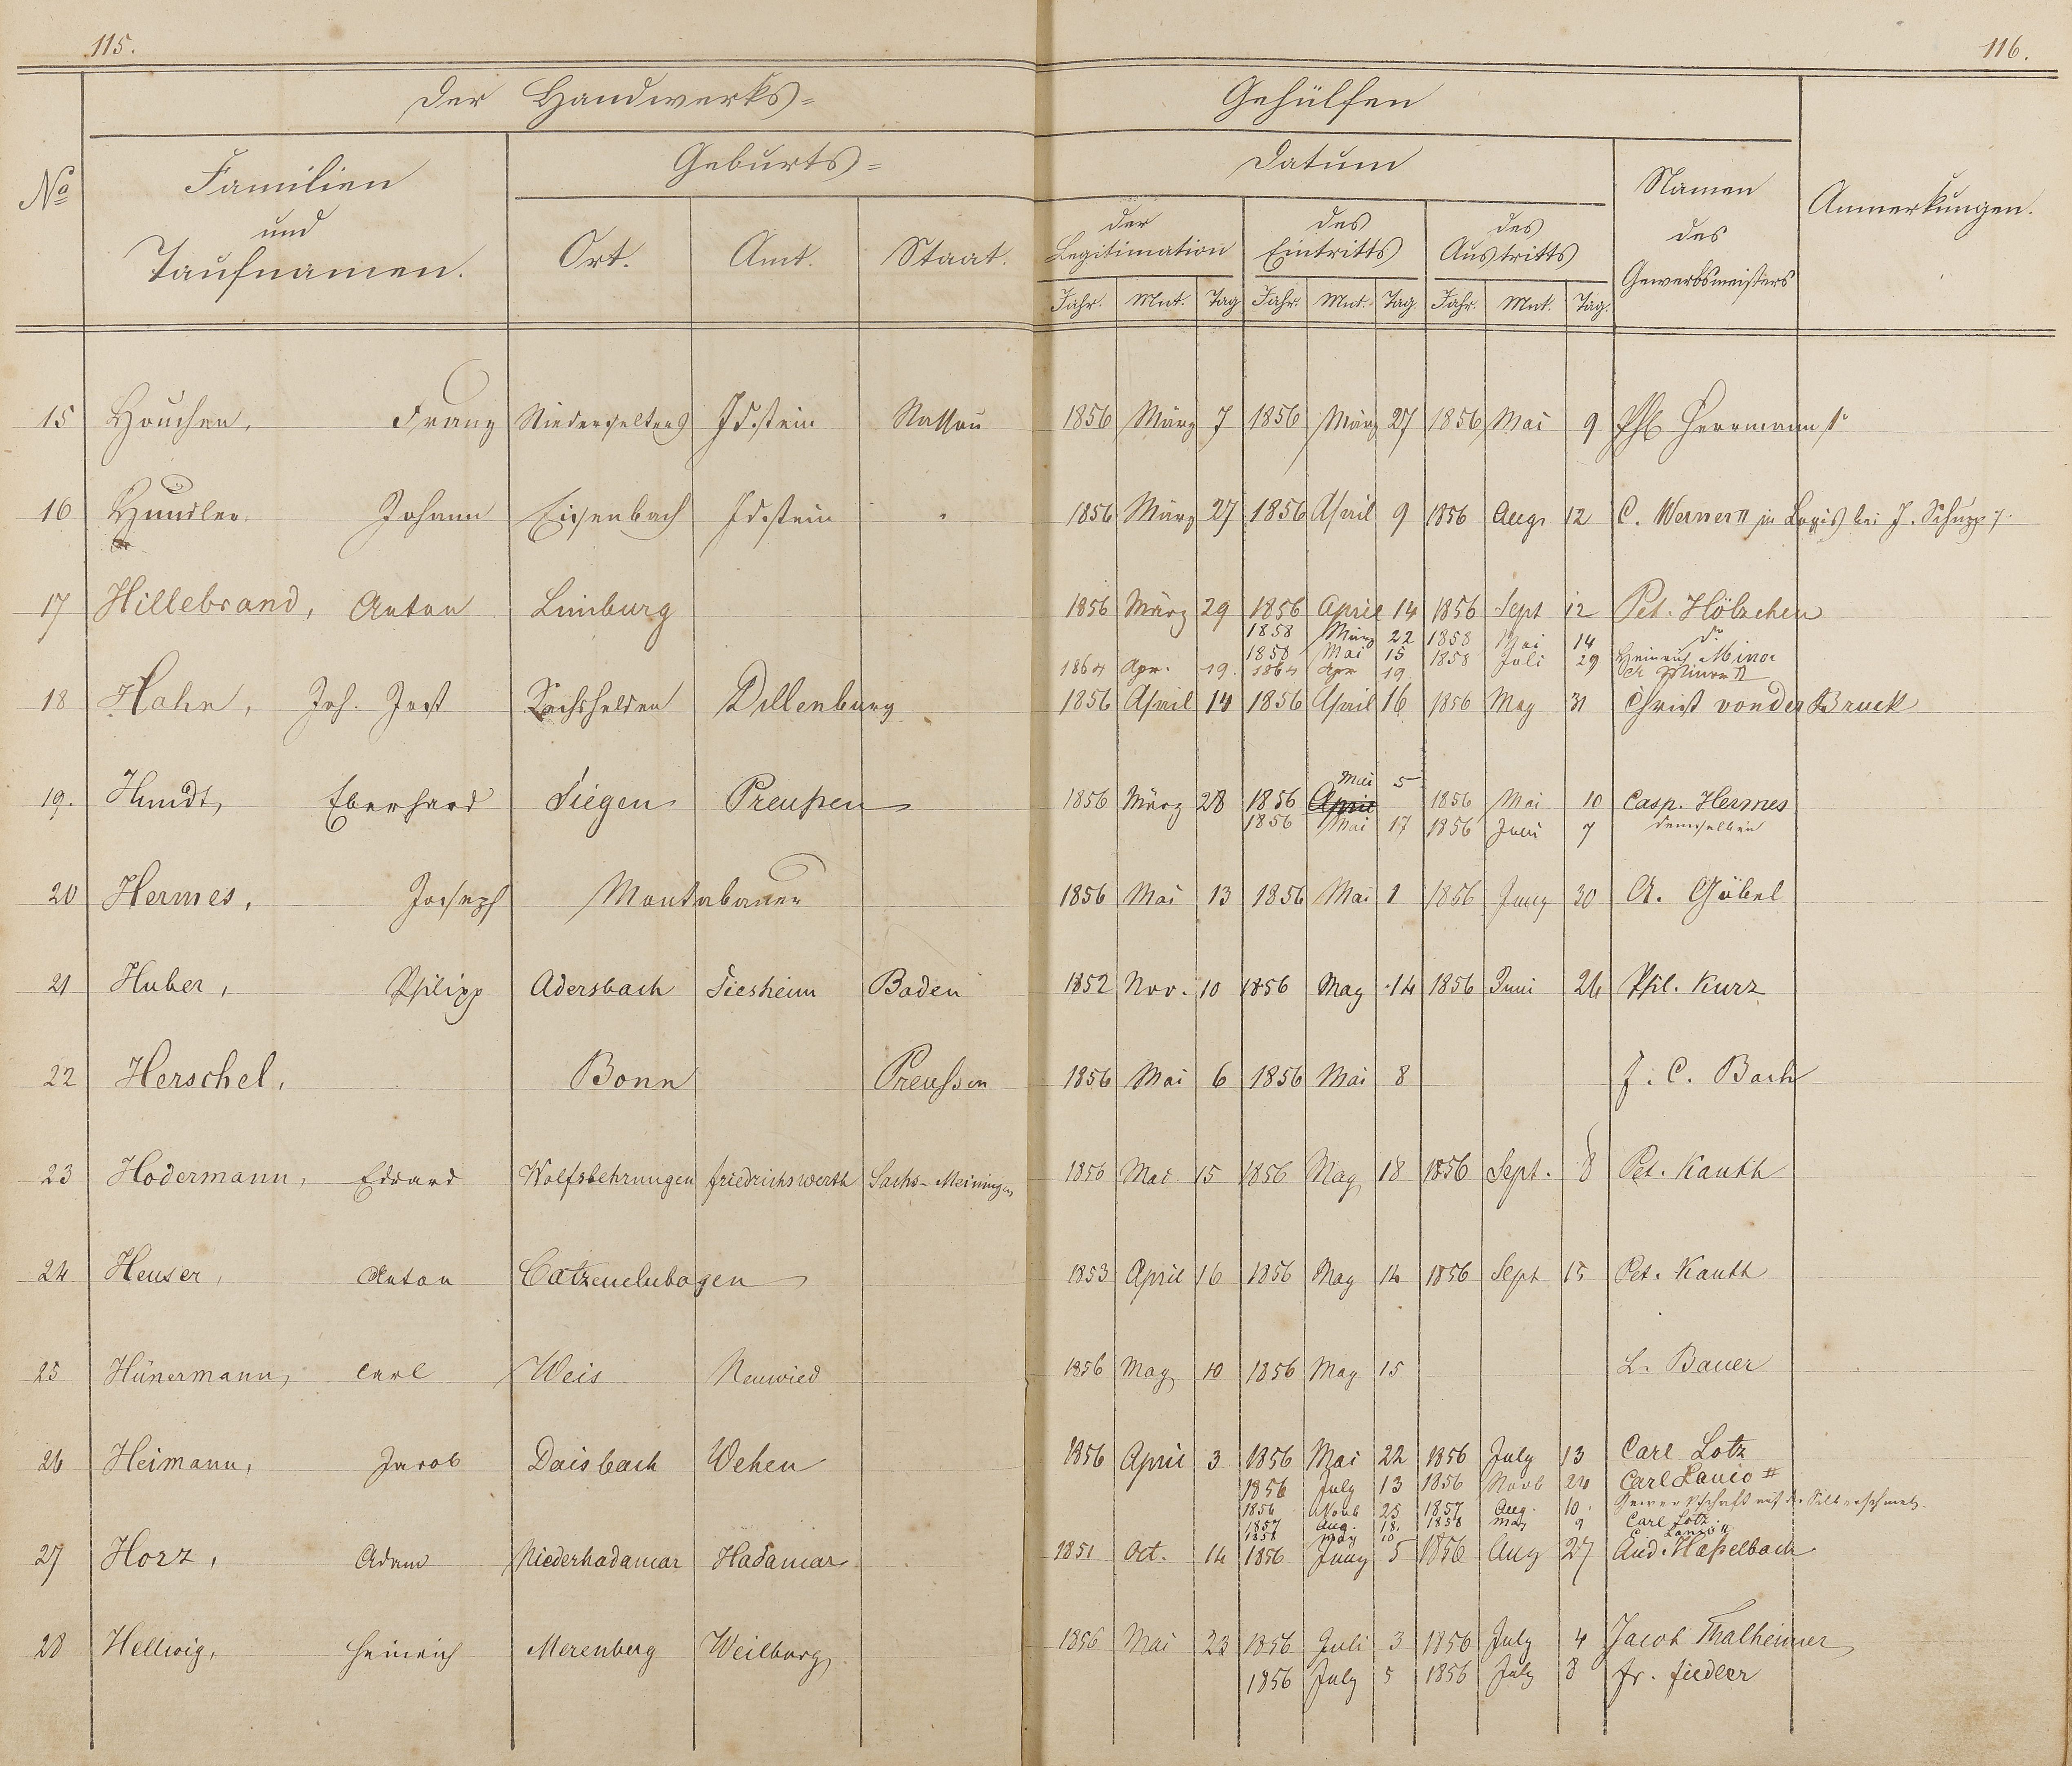 115.
116.
Der Handwerks= Gehülfen
No
Familien und Taufnamen.
Geburts=
Datum
Namen des Gewerbsmeisters
Anmerkungen.
Ort. Amt. Staat.
der Legitimation
des Eintritts
des Austritts
Jahr. Mnt. Tag Jahr. Mnt. Tag. Jahr. Mnt. Tag.
15 Franz Niederselters Idstein Nassau 1856 März 7 1856 März 27 1856 Mai 9 Phl Herrmann
16 Johann Eisenbach Idstein " 1856 März 27 1856 April 9 1856 Augs 12 C. Werner II in Logis bei J. Schupp
17 Hillebrand, Anton Limburg 1856 März 29 1856 April 14 1856 Sept 12 Pet. Hölzchen
1858 März 22 1858 Mai 14 do
1858 Mai 15 1858 Juli 29 Heinrich Minor
1864 Apr. 19. 1864 Apr 19. Minor II
18 Hahn, Joh. Jost Sechshelden Dillenburg 1856 April 14 1856 April 16 1856 May 31 Christ von der Bruck
19. Hundt, Eberhard Siegen Preußen 1856 März 28 1856 April Mai 5 1856 Mai 10 Casp. Hermes
1856 Mai 17 1856 Juni 7 demselben
20 Hermes, Joseph Montabauer 1856 Mai 13 1856 Mai 1 1856 Juny 30 A. Göbel
21 Huber, Philipp Adersbach Siesheim Baden 1852 Nov. 10 1856 May 14 1856 Juni 26 Phil. Kurz
22 Herschel, Bonn Preußen 1856 Mai 6 1856 Mai 8 J. C. Bach
23 Hodermann, Eduard Wolfsbehrungen Friedrichswerth Sachs-Meiningen 1856 Mai 15 1856 May 18 1856 Sept. 8 Pet. Kauth
24 Heuser, Anton Catzenelnbogen 1853 April 16 1856 May 14 1856 Sept 15 Pet. Kauth
25 Hünermann, Carl Weis Neuwied 1856 May 10 1856 May 15 L. Bauer
26 Heimann, Jacob Daisbach Wehen 1856 April 3 1856 Mai 22 1856 July 13 Carl Lotz
1856 July 13 1856 Novb 24 Carl Lanio II
1856 Novb 25 1857 Aug. 10. Gewerkschaft auf der Silberschmelz.
1857 Aug. 18. 1858 May 9 Carl Lotz.
1858 May 10 C Lanio II
27 Horz, Adam Niederhadamar Hadamar 1851 Oct. 14 1856 Juny 5 1856 Aug 27 And. Haßelbach
28 Hellwig, Heinrich Merenberg Weilburg 1856 Mai 23 1856 Juli 3 1856 July 4 Jacob Thalheimer
1856 July 5 1856 July 8 Fr. Fiedler